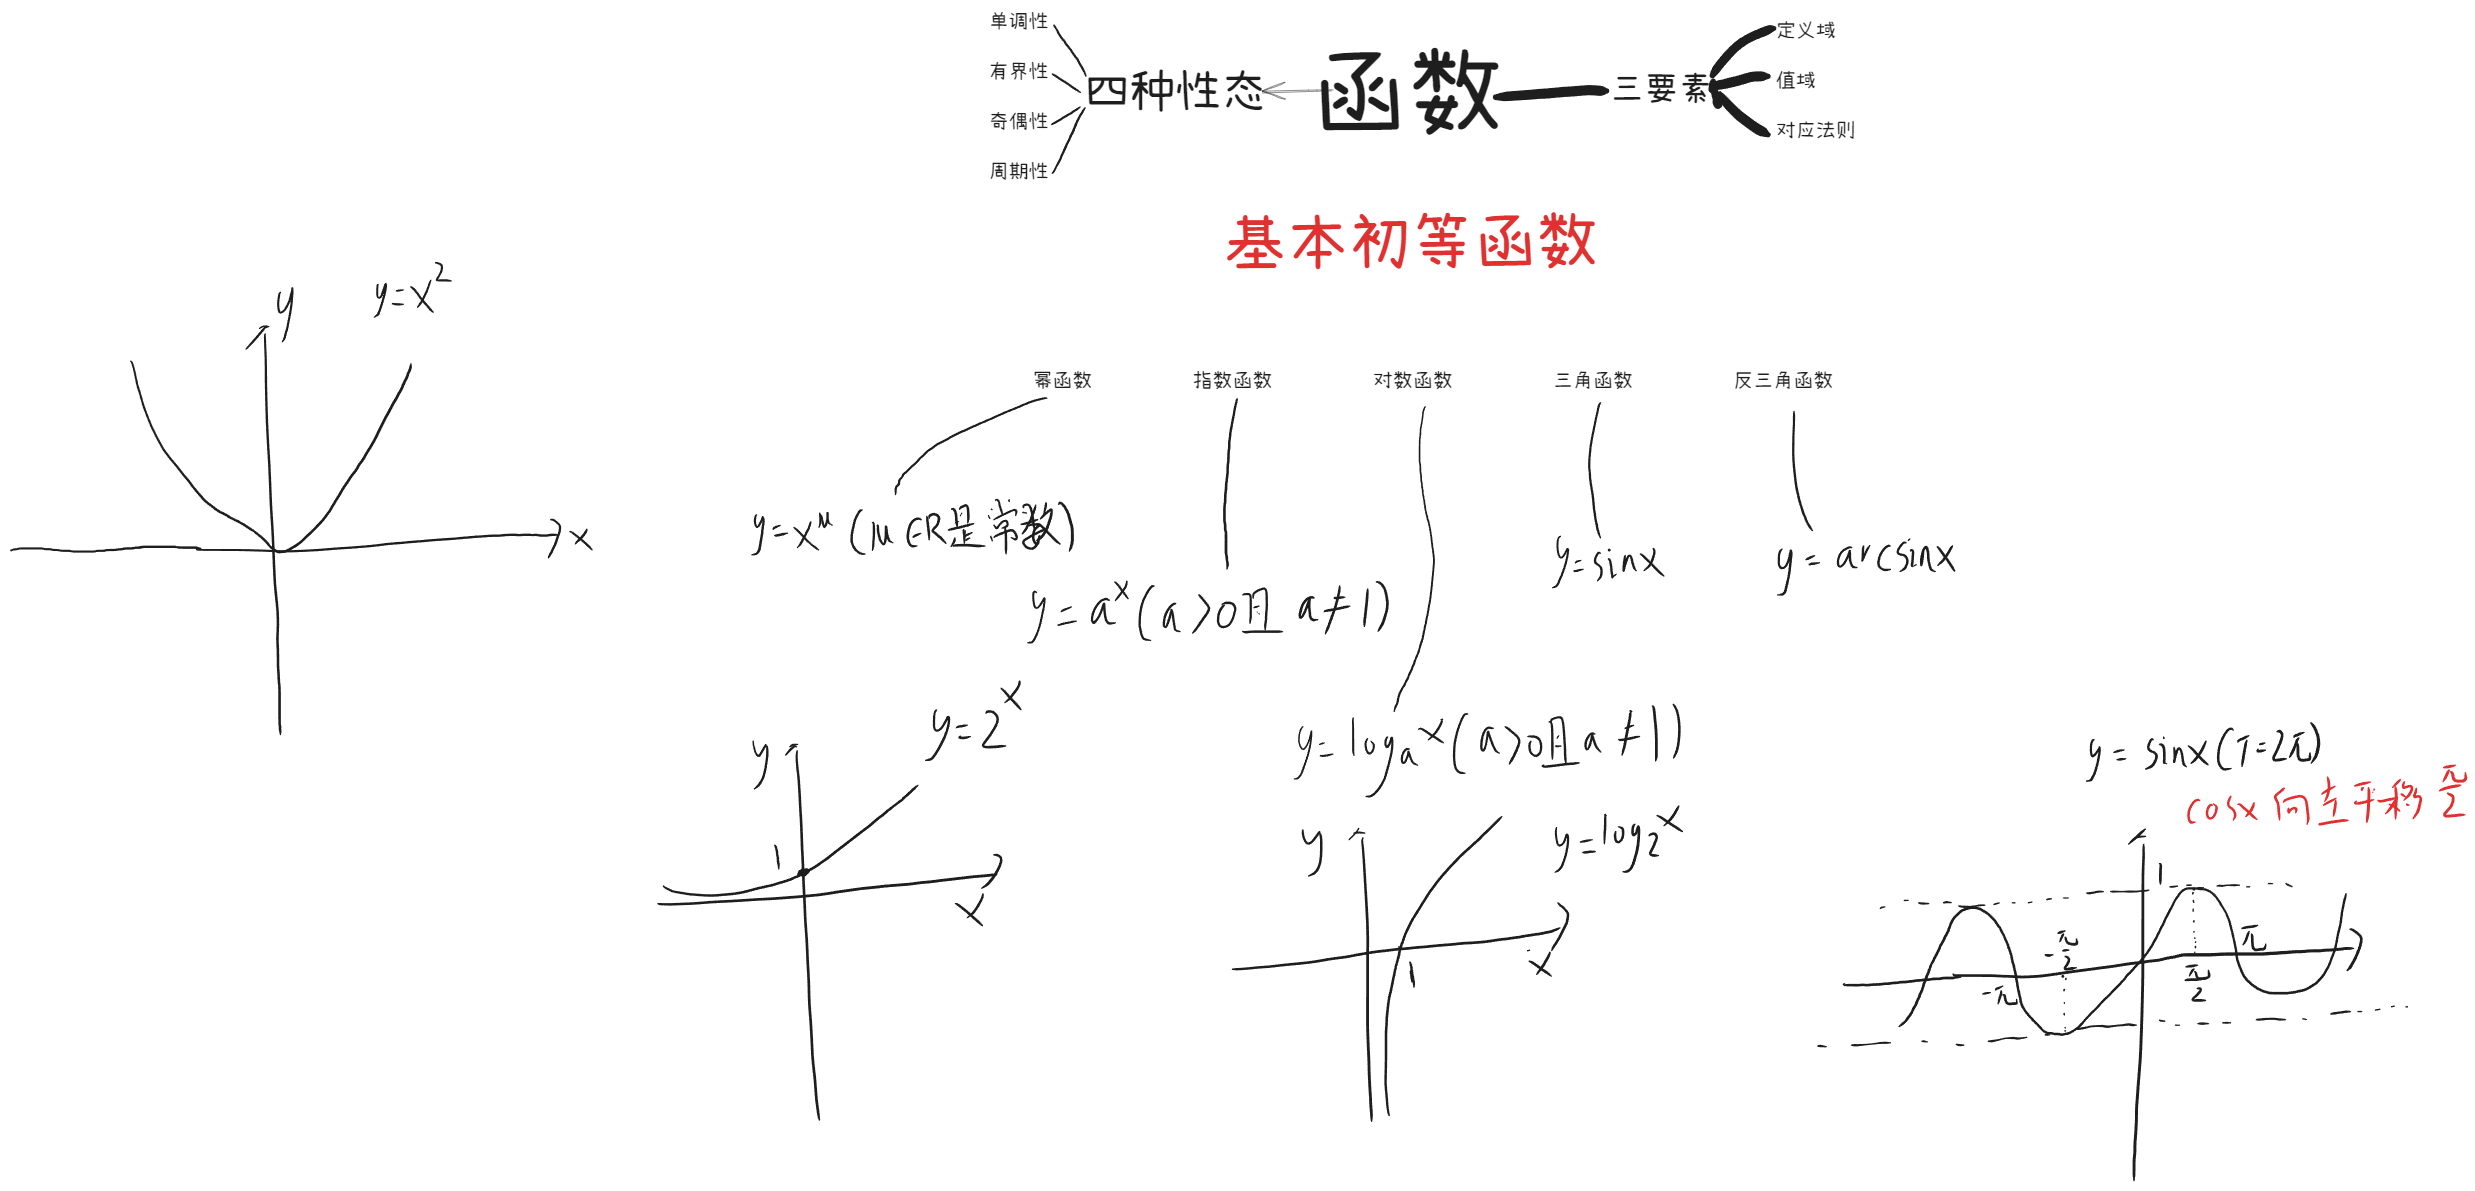 单调性
有界性
奇偶性
周期性
四种性态
函数
三要素
定义域
值域
对应法则
基本初等函数
y=x²
y
x
幂函数
指数函数
对数函数
三角函数
反三角函数
y=x^μ (μ∈R是常数)
y=a^x (a>0且 a≠1)
y=log_a x (a>0且a≠1)
y=sinx
y=arcsinx
y=2^x
y
1
x
y=log₂x
y
1
x
y=sinx(T=2π)
cosx向左平移π/2
1
-π
-π/2
π/2
π